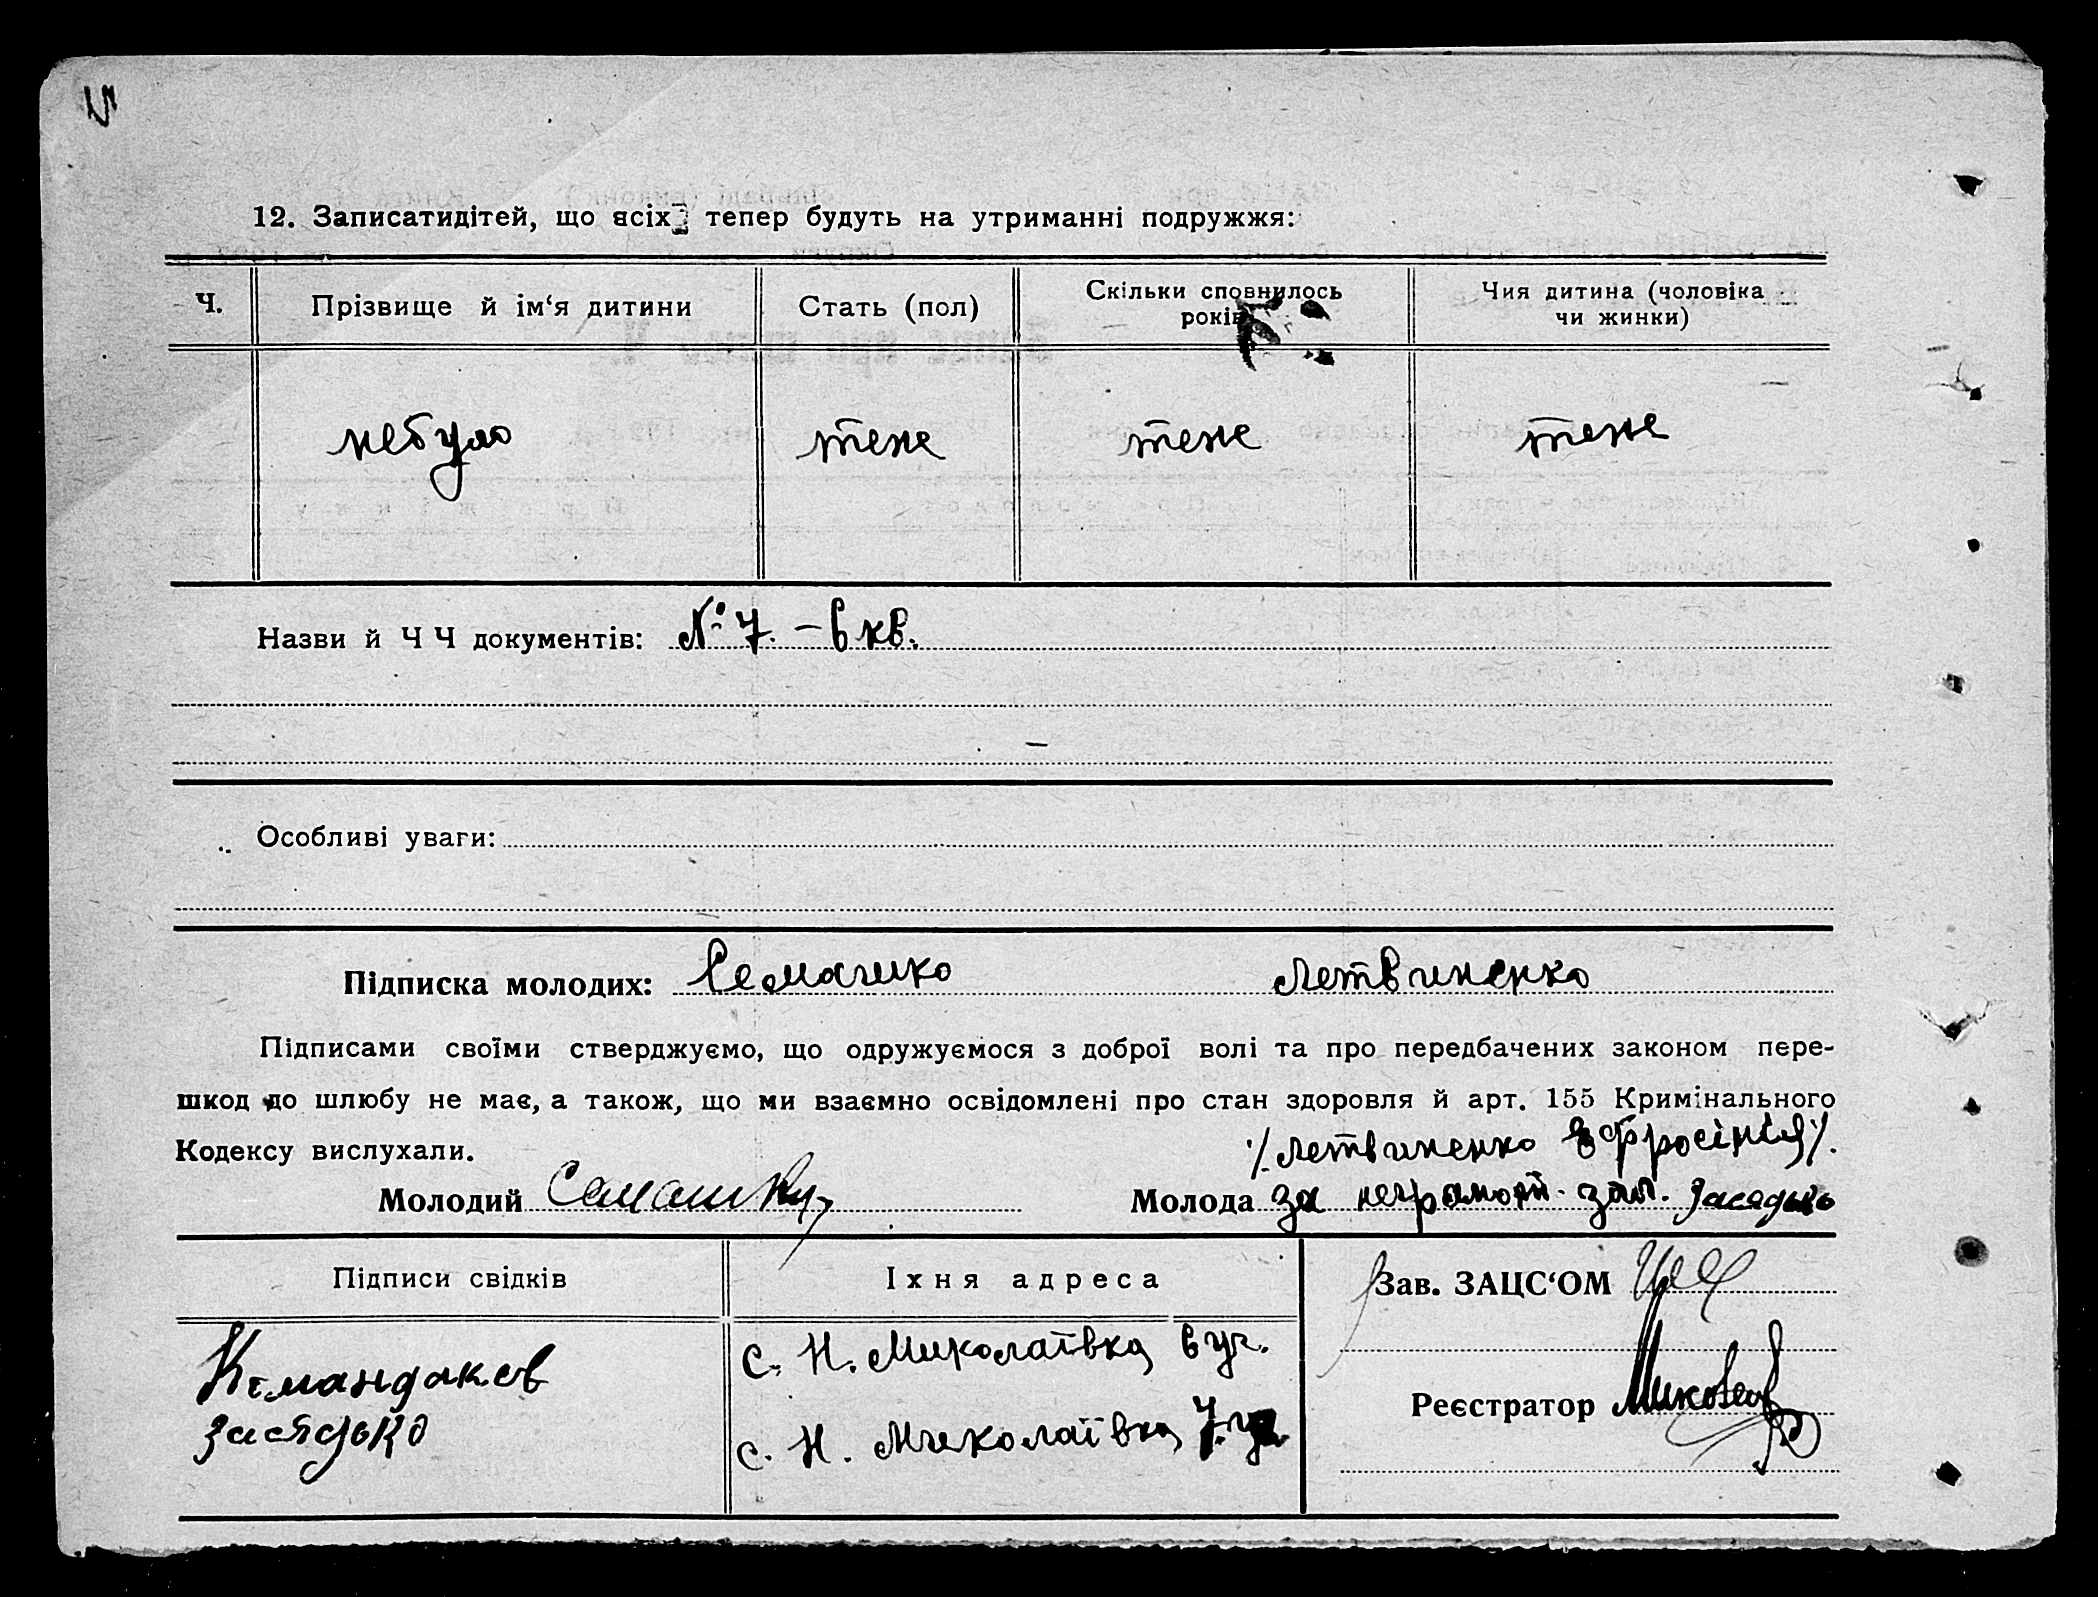 12. Записатидітей, що всіх тепер будуть на утриманні подружжя:
Ч.
Прізвище й ім‘я дитини
Стать (пол)
Скільки сповнилось
років
Чия дитина (чоловіка
чи жинки)
небуло
теже
теже
теже
Назви й Ч Ч документів: № 7. – 6 кв.
Особливі уваги:
Підписка молодих: Семашко Летвиненко
Підписами своїми стверджуємо, що одружуємося з доброї волі та про передбачених законом пере-
шкод до шлюбу не має, а також, що ми взаємно освідомлені про стан здоровля й арт. 155 Кримінального
Кодексу вислухали.
/. Летвиненко Эфросінія /.
Молодий Семашко
Молода за неграмот. зап. Засядько
Підписи свідків
Іхня адреса
Зав. ЗАЦС‘ОМ
с. Н. Миколаївка 6 уч.
Засядько
с. Н. Миколаївка 7 уч
Реєстратор